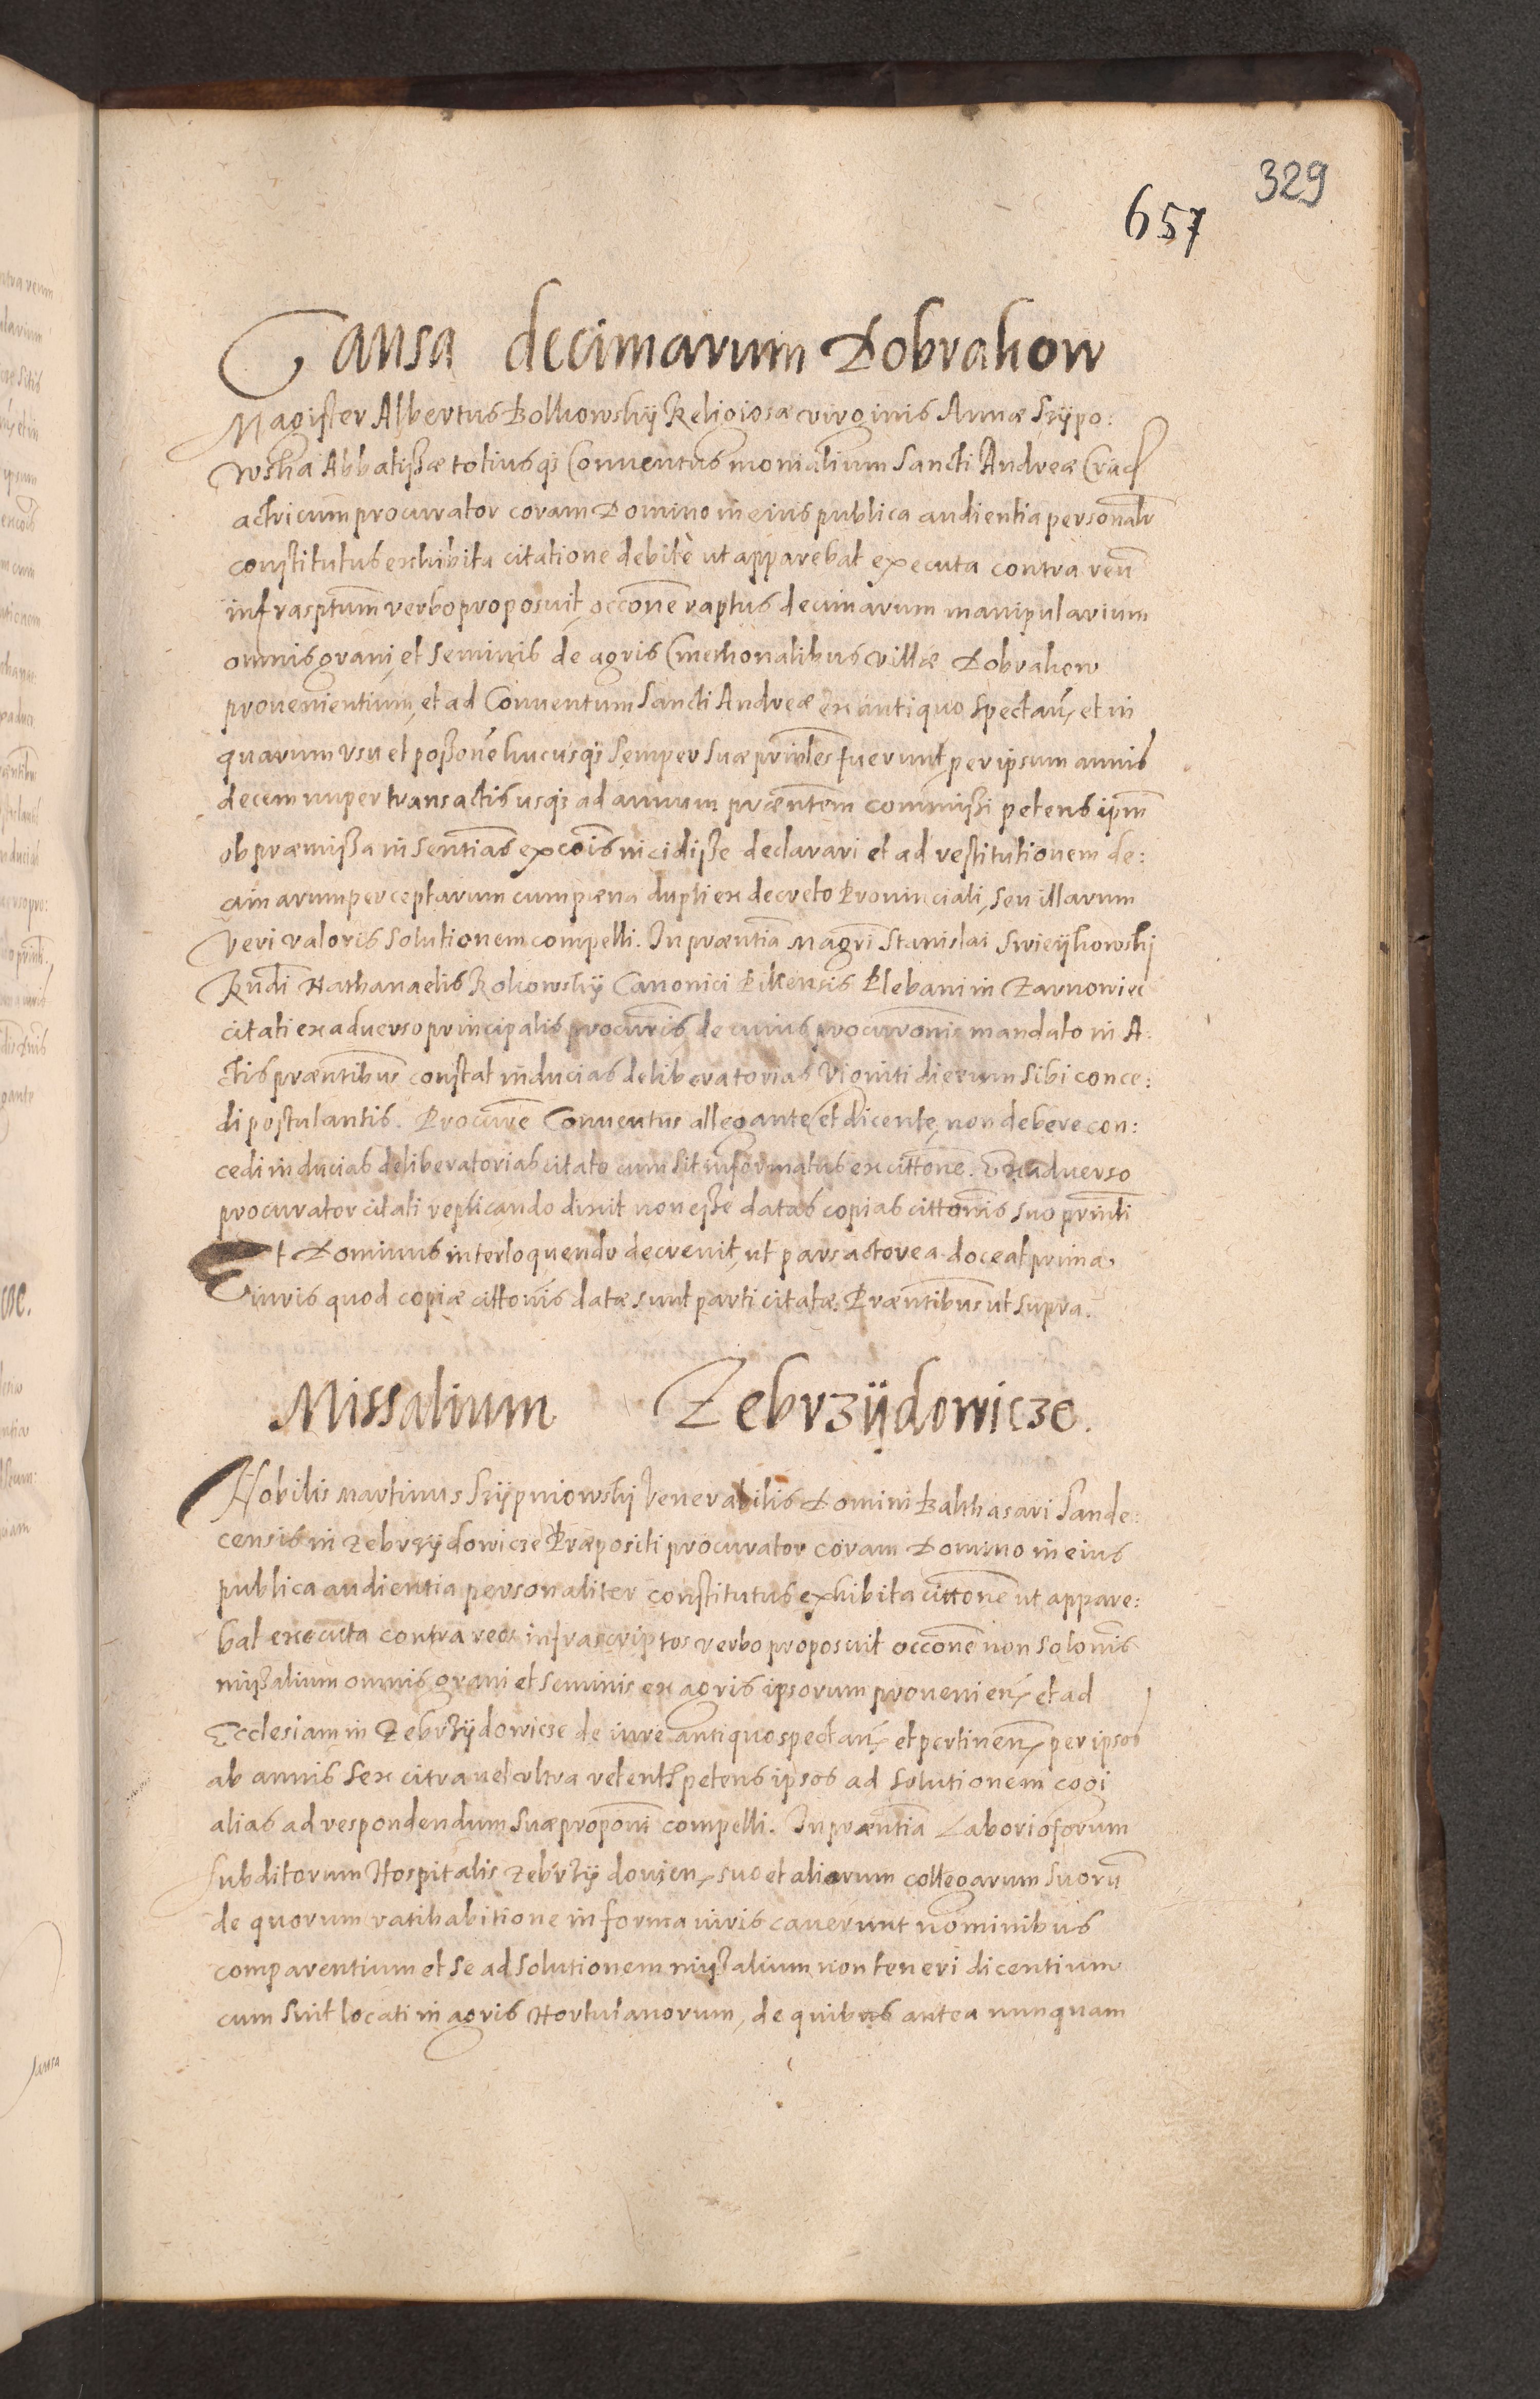 329
657
Causa decimarum Dobrakow
Magister Albertus Bolkowskij Religiosæ virginis Annæ Srijpo:
wska Abbatissæ totiusq; Conventus monialium Sancti Andreæ Crac
actricum procurator coram Domino in eius publica audientia personalr
constitutus exhibita citatione debitè ut apparebat executa contra reū
infrasptum verbo proposuit occone raptus decimarum manipularium
omnis grani et seminis de agris Cmethonalibus villæ Dobrakow
provenientium, et ad Conventum Sancti Andreæ ex antiquo spectan, et in
quarum usu et possone hucusq; semper suæ prinles fuerunt, per ipsum annis
decem nuper transactis usq; ad annum præntem commissi petens ipm
ob præmissa in sentias excois incidisse declarari et ad restitutionem de:
cimarum perceptarum cum pæna dupli ex decreto Provinciali, seu illarum
veri valoris solutionem compelli. In præntia Magri Stanislai Swieijkowskij
Rndi Nathanaelis Rokowskij Canonici Pilcensis Plebani in Zarnowiec
citati ex adverso principalis procuris de cuius procuronis mandato in A:
ctis præntibus constat inducias deliberatorias Viginti dierum sibi conce:
di postulantis. Procure Conventus allegante et dicente, non debere con:
cedi inducias deliberatorias citato cum sit informatus ex cittone. Ex adverso
procurator citati replicando dixit non esse datas copias cittonis suo prinli
Et Dominus interloquendo decrevit, ut pars actorea doceat prima
iuris quod copiæ cittonis datæ sunt parti citatæ. Præntibus ut supra.
Missalium Zebrzÿdowicze.
Nobilis Martinus Srijpniowskij Venerabilis Domini Balthasari Sande:
censis in Zebrzijdowicze Præpositi procurator coram Domino in eius
publica audientia personaliter constitutus exhibita cittone ut appare:
bat executa contra reos infrascriptos verbo proposuit occone non solonis
missalium omnis grani et seminis ex agris ipsorum provenien, et ad
Ecclesiam in Zebrzijdowicze de iure antiquo spectan, et pertinen, per ipsos
ab annis sex citra vel ultra retent petens ipsos ad solutionem cogi
alias ad respondendum suæ proponi compelli. In præntia Laboriosorum
subditorum Hospitalis Zebrzijdovien, suo et aliorum collegarum suorū
de quorum ratihabitione in forma iuris caverunt nominibus
comparentium et se ad solutionem missalium non teneri dicentium
cum sint locati in agris Hortulanorum, de quibus antea nunquam